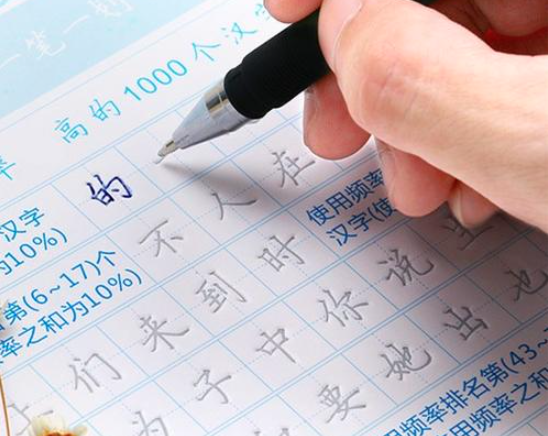 一笔一划
高的1000个汉字
的
不人在
汉字
为10%)
第(6~17)个
率之和为10%)
使用频率
汉字(使
们来到时
为子中你说
要她出也
用频率排名第(43~
用频率之和